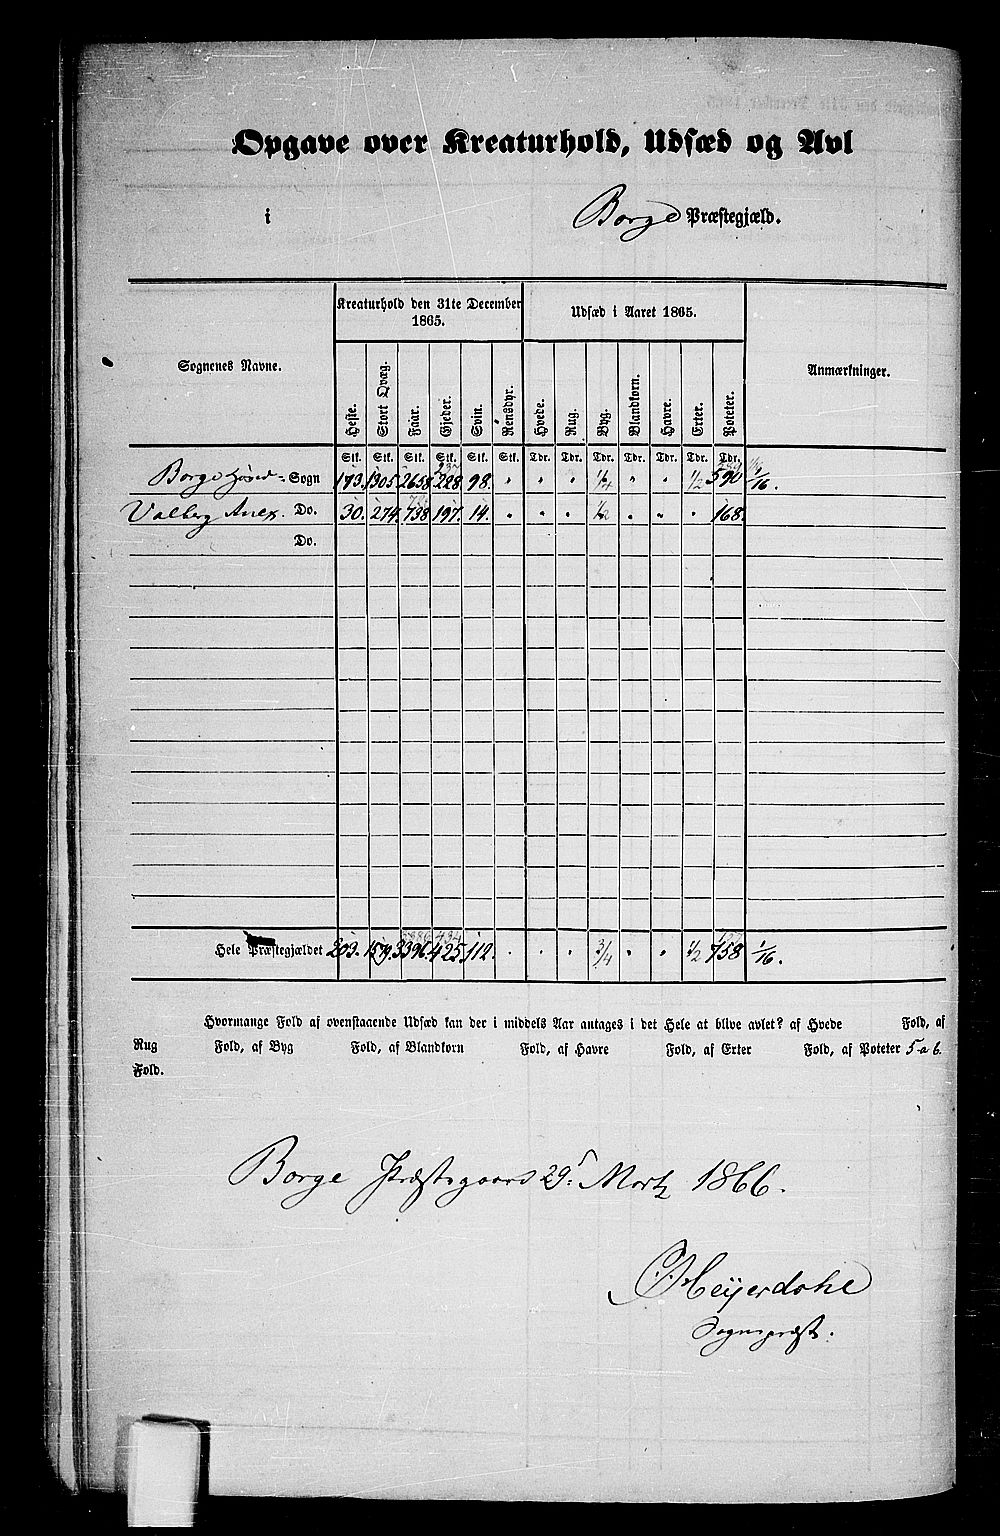 Opgave over Kreaturhold, Udsæd og Avl
i Borge Præstegjæld.
Sognenes Navne. Kreaturhold den 31te December 1865. Udsæd i Aaret 1865. Anmærkninger.
Heste. Stort Qvæg. Faar. Gjeder. Svin. Rensdyr. Hvede. Rug. Byg. Blandkorn. Havre. Erter. Poteter.
Stk. Stk. Stk. Stk. Stk. Stk. Tdr. Tdr. Tdr. Tdr. Tdr. Tdr. Tdr.
Borge Hoved- Sogn 173. 1305 2658 228 98. " " " 1/4 " " 1/2 590 1/16.
Valberg Anex. Do. 30. 274. 738 197. 14. " " " 1/2 " " " 168.
Do.
Hele Præstegjældet 203. 1579. 3396. 425. 112. " " " 3/4 " " 1/2 758 1/16.
Hvormange Fold af ovenstaaende Udsæd kan der i middels Aar antages i det Hele at blive avlet? af Hvede Fold, af
Rug Fold, af Byg Fold, af Blandkorn Fold, af Havre Fold, af Erter Fold, af Poteter 5 a 6.
Fold.
Borge Præstegaard 29. Martz 1866.
Heyerdahl
Sognepræst.